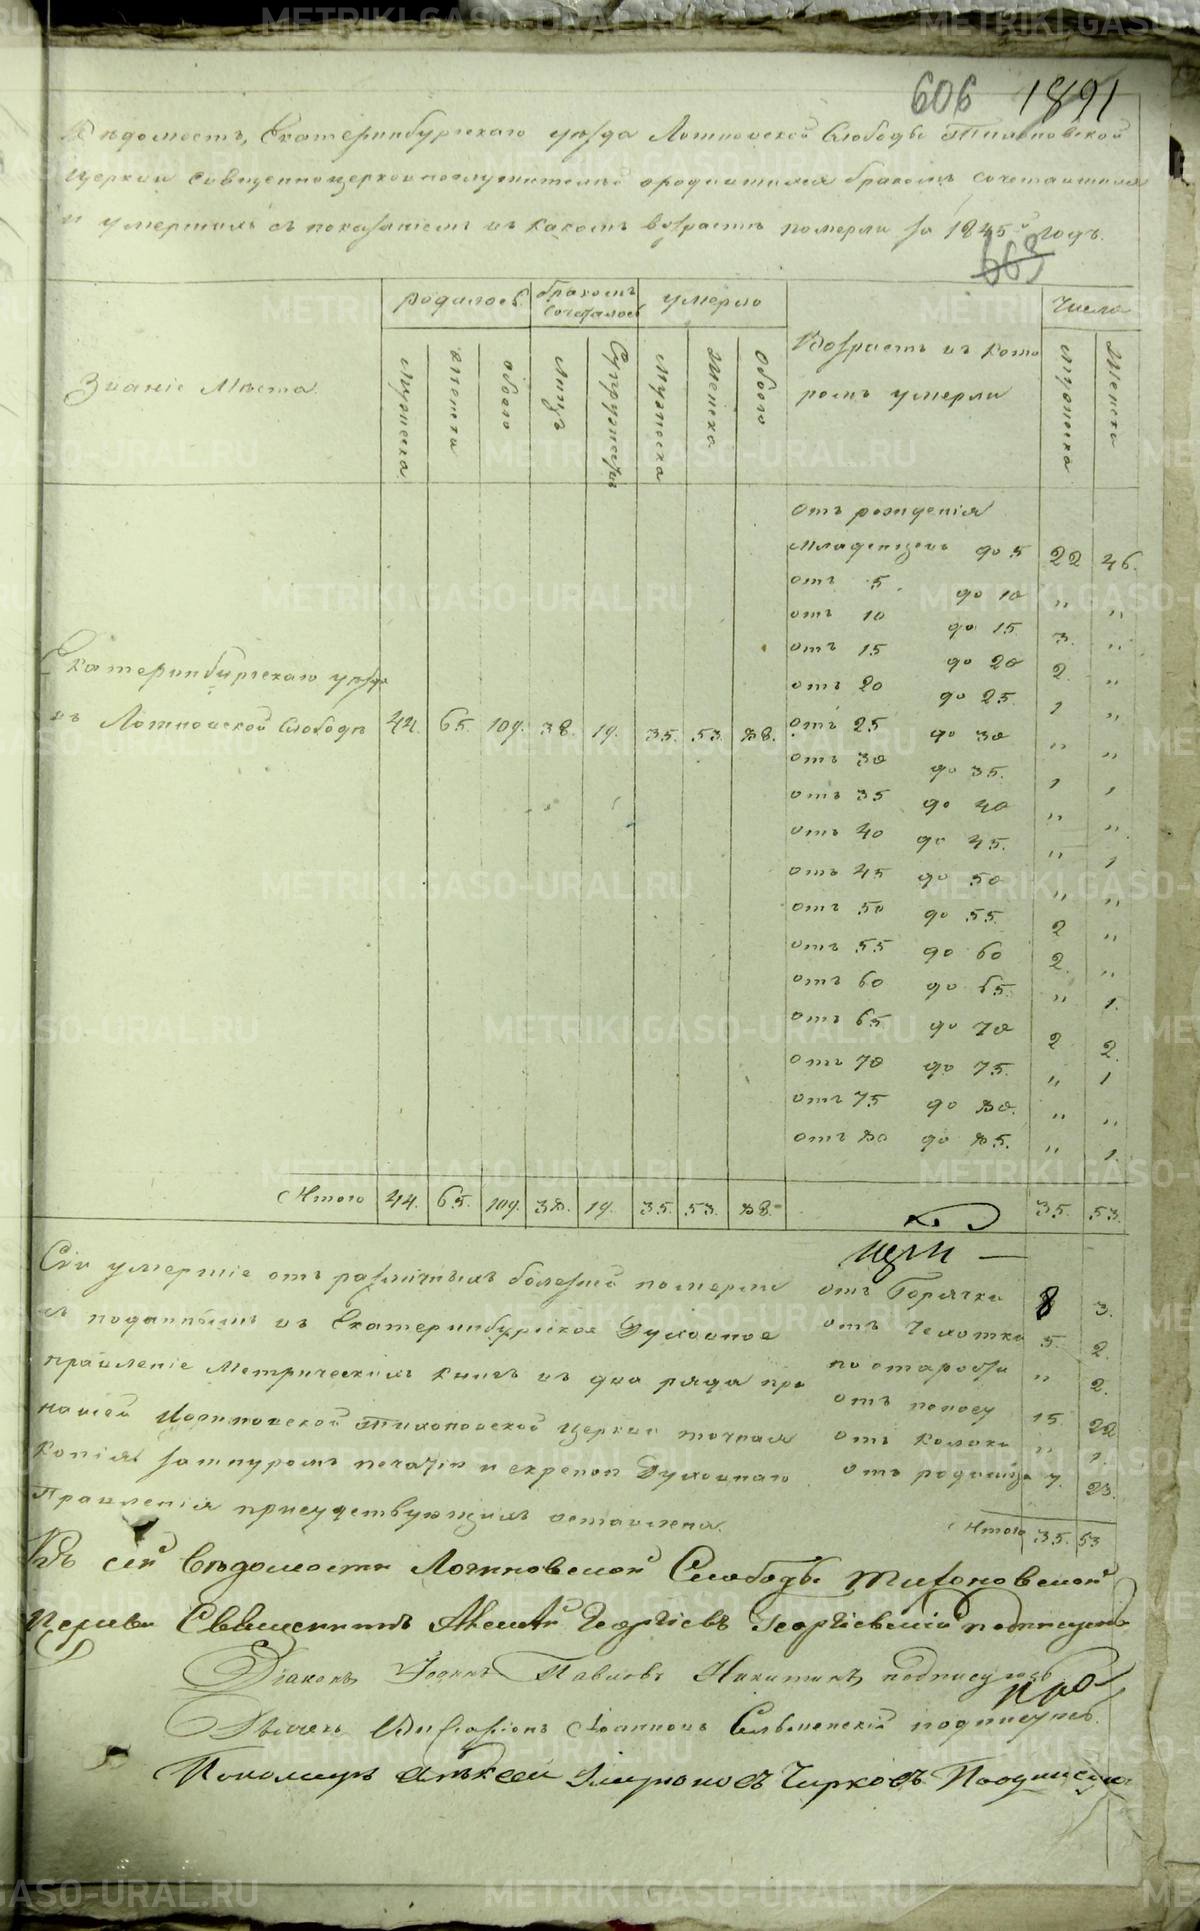 606 1891
Вѣдомость, Екатеринбургскаго уѣзда Логиновской Слободы Тихоновской
Церкви Священноцерковнослужителей о родившихся бракомъ сочетавшихся
и умершихъ съ показаніемъ въ какомъ возрастѣ померли за 1845й годъ.
663
Званіе Мѣста. родилось бракомъ сочеталось умерло Возрастъ въ которомъ умерли Число
мужеска женска обоего лицъ Супружествъ мужеска женска обоего мужеска женска
отъ рожденія
младенцевъ до 5 22 46.
отъ 5. до 10 " "
отъ 10 до 15 3. "
отъ 15 до 20 2. "
отъ 20 до 25. 1 "
Екатеринбургскаго уѣзда
въ Логиновской Слободѣ 44. 65. 109. 38. 19. 35. 53. 88.
отъ 25 до 30 " "
отъ 30 до 35. 1 1
отъ 35 до 40 " "
отъ 40 до 45. " 1
отъ 45 до 50 " "
отъ 50 до 55. 2 "
отъ 55 до 60 2. "
отъ 60 до 65. " 1.
отъ 65 до 70 2 2.
отъ 70 до 75. " 1
отъ 75 до 80. " "
отъ 80 до 85. " 1.
Итого 44. 65. 109. 38. 19. 35. 53. 88. 35. 53.
Сіи умершіе отъ различныхъ болезней померли
въ поданныхъ въ Екатеринбургское Духовное
правленіе Метрическихъ книгъ въ два ряда при
нашей Логиновской Тихоновской церкви точная
копія за шнуромъ печатію и скрепою Духовнаго
Правленія присудствующихъ оставлена.
отъ Горячки 8 3.
отъ Чехотки 5. 2.
по старости " 2.
отъ поносу 15. 22
отъ колоки " 1.
отъ родимца 7. 23.
Итого 35. 53
Къ сей вѣдомости Логиновской Слободы Тихоновской
Церкви Священникъ Алексѣй Георгіевъ Георгіевскій подписуюсь
Діаконъ Іоаннъ Павловъ Никитинъ подписуюсь
Дьячекъ Виссаріонъ Іоанновъ Сельменскій подписуюсь.
Пономарь Алексей Миронов Чирковъ Подписуюсь
METRIKI.GASO-URAL.RU